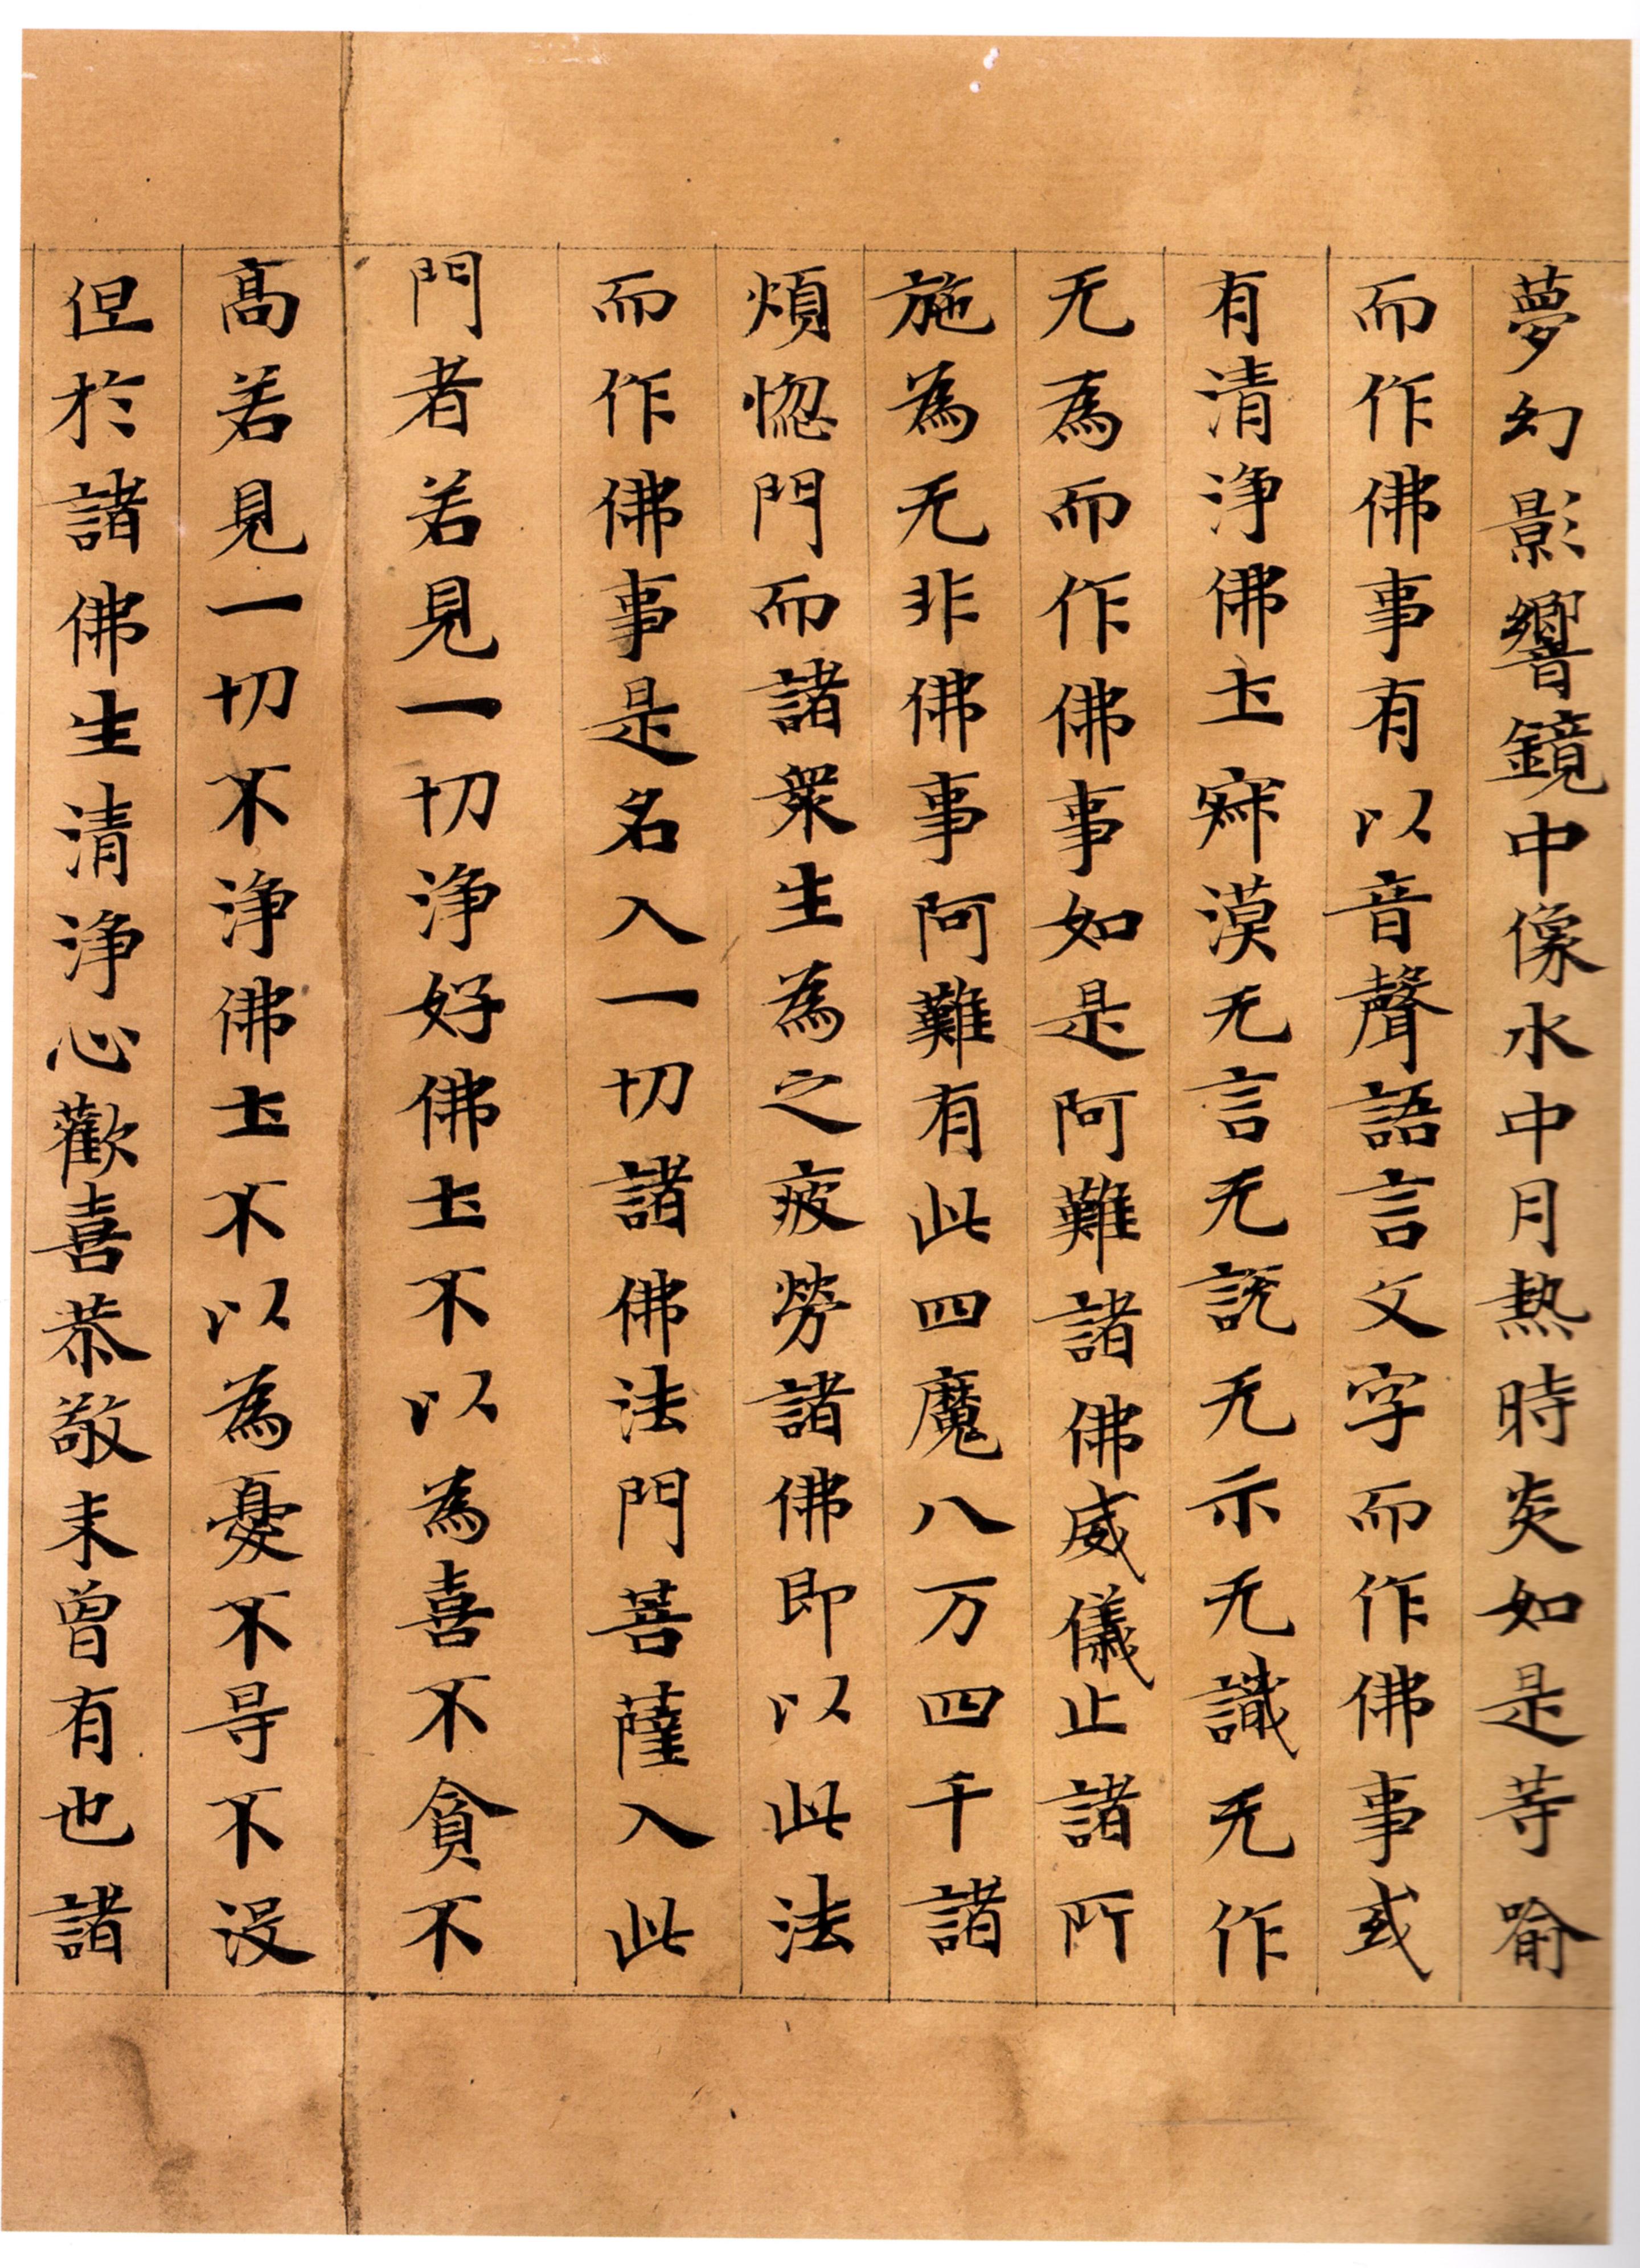 夢幻影響鏡中像水中月熱時炎如是等喻
而作佛事有以音聲語言文字而作佛事或
有清淨佛土寂漠无言无說无示无識无作
无為而作佛事如是阿難諸佛威儀止諸所
施為无非佛事阿難有此四魔八万四千諸
煩惚門而諸衆生為之疲勞諸佛即以此法
而作佛事是名入一切諸佛法門菩薩入此
門者若見一切淨好佛土不以為喜不貪不
高若見一切不淨佛土不以為憂不㝵不沒
但於諸佛生清淨心歡喜恭敬未曾有也諸